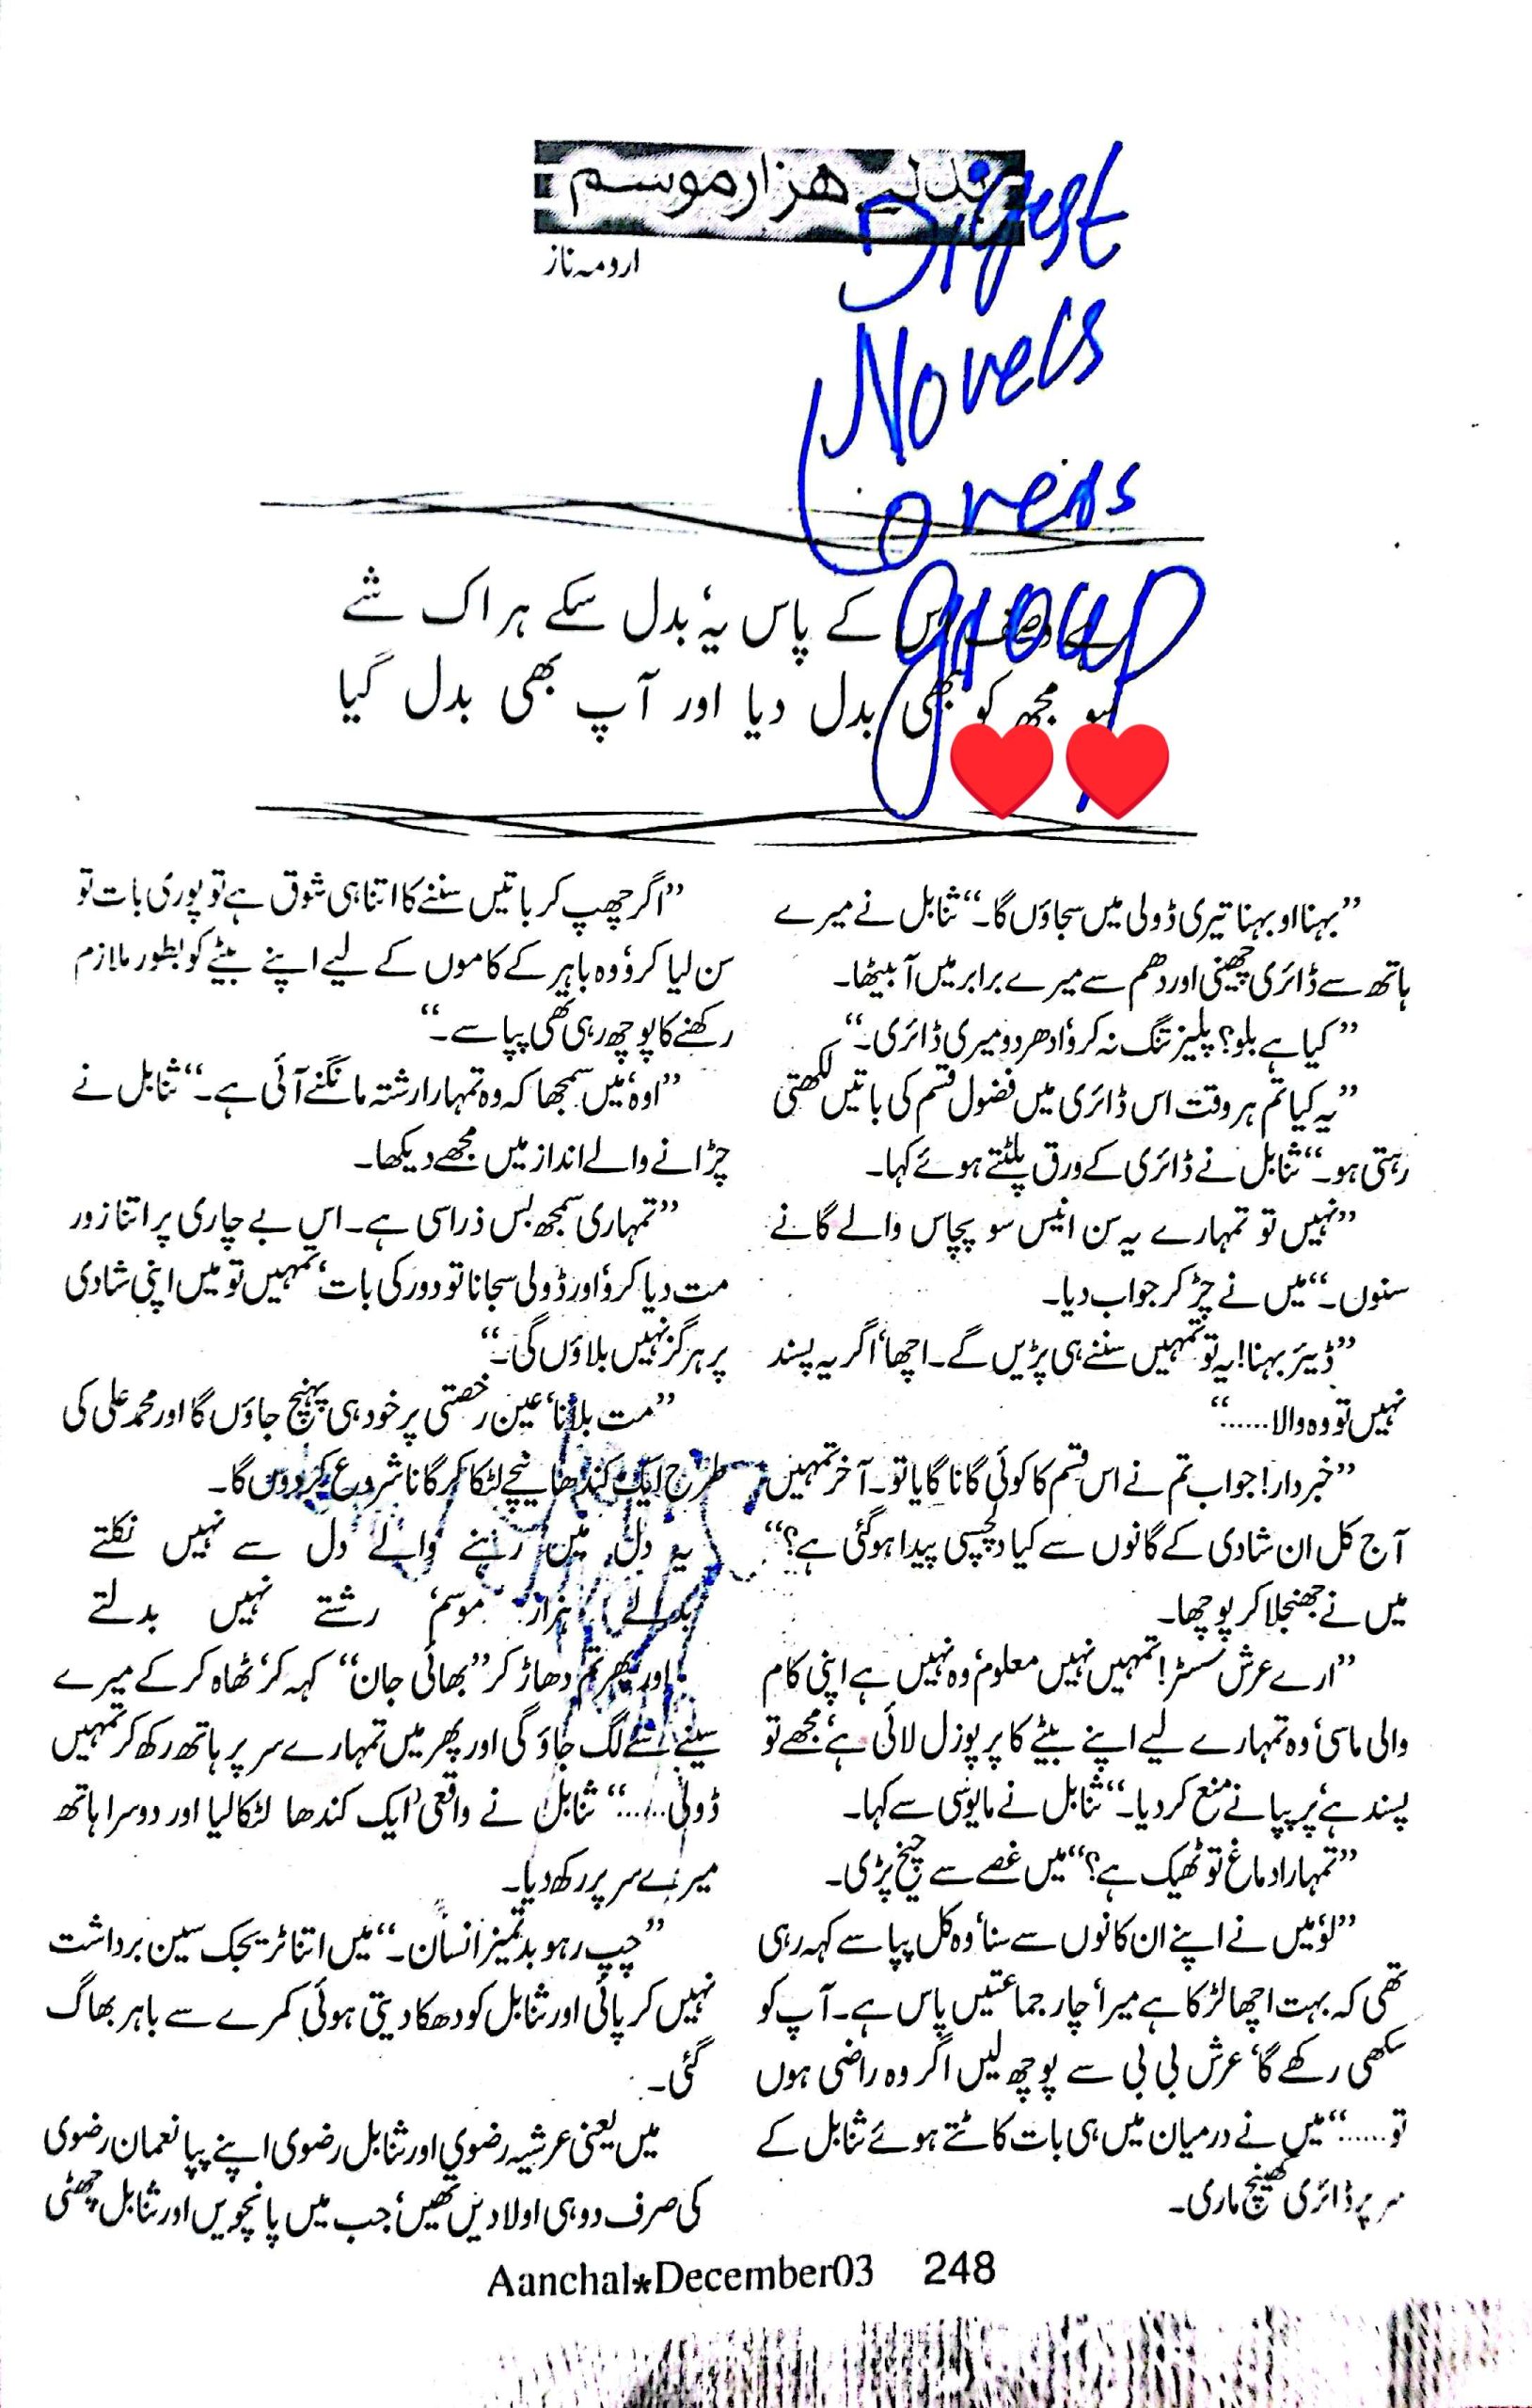 بدلے ہزار موسم
ارومہ ناز
Digest
Novels
Lovers
group
کے پاس یہ، بدل سکے ہر اک شے
سو مجھ کو بھی بدل دیا اور آپ بھی بدل گیا
’’بہنا او بہنا تیری ڈولی میں سجاؤں گا۔‘‘ ثنابل نے میرے
ہاتھ سے ڈائری چھینی اور دھم سے میرے برابر میں آ بیٹھا۔
’’کیا ہے بلو؟ پلیز تنگ نہ کرو، ادھر دو میری ڈائری۔‘‘
’’یہ کیا تم ہر وقت اس ڈائری میں فضول قسم کی باتیں لکھتی
رہتی ہو۔‘‘ ثنابل نے ڈائری کے ورق پلٹتے ہوئے کہا۔
’’نہیں تو تمہارے یہ سن انیس سو پچاس والے گانے
سنوں۔‘‘ میں نے چڑ کر جواب دیا۔
’’ڈیئر بہنا! یہ تو تمہیں سننے ہی پڑیں گے۔ اچھا، اگر یہ پسند
نہیں تو وہ والا......‘‘
’’خبردار! جو اب تم نے اس قسم کا کوئی گانا گایا تو۔ آخر تمہیں
آج کل ان شادی کے گانوں سے کیا دلچسپی پیدا ہوگئی ہے؟‘‘
میں نے جھنجلا کر پوچھا۔
’’ارے عرش سسٹر! تمہیں نہیں معلوم، وہ نہیں ہے اپنی کام
والی ماسی، وہ تمہارے لیے اپنے بیٹے کا پرپوزل لائی ہے، مجھے تو
پسند ہے، پر پپا نے منع کر دیا۔‘‘ ثنابل نے مایوسی سے کہا۔
’’تمہارا دماغ تو ٹھیک ہے؟‘‘ میں غصے سے چیخ پڑی۔
’’لو، میں نے اپنے ان کانوں سے سنا، وہ کل پپا سے کہہ رہی
تھی کہ بہت اچھا لڑکا ہے میرا، چار جماعتیں پاس ہے۔ آپ کو
سکھی رکھے گا، عرش بی بی سے پوچھ لیں اگر وہ راضی ہوں
تو......‘‘ میں نے درمیان میں ہی بات کاٹتے ہوئے ثنابل کے
سر پر ڈائری کھینچ ماری۔
’’اگر چھپ کر باتیں سننے کا اتنا ہی شوق ہے تو پوری بات تو
سن لیا کرو، وہ باہر کے کاموں کے لیے اپنے بیٹے کو بطور ملازم
رکھنے کا پوچھ رہی تھی پپا سے۔‘‘
’’اوہ، میں سمجھا کہ وہ تمہارا رشتہ مانگنے آئی ہے۔‘‘ ثنابل نے
چڑانے والے انداز میں مجھے دیکھا۔
’’تمہاری سمجھ بس ذرا سی ہے۔ اس بے چاری پر اتنا زور
مت دیا کرو، اور ڈولی سجانا تو دور کی بات، تمہیں تو میں اپنی شادی
پر ہرگز نہیں بلاؤں گی۔‘‘
’’مت بلانا، عین رخصتی پر خود ہی پہنچ جاؤں گا اور محمد علی کی
طرح ایک کندھا نیچے لٹکا کر گانا شروع کردوں گا۔
یہ دل میں رہنے والے دل سے نہیں نکلتے
بدلے ہزار موسم، رشتے نہیں بدلتے
اور پھر تم دھاڑ کر ’’بھائی جان‘‘ کہہ کر، ٹھاہ کر کے میرے
سینے سے لگ جاؤ گی اور پھر میں تمہارے سر پر ہاتھ رکھ کر تمہیں
ڈولی......‘‘ ثنابل نے واقعی، ایک کندھا لٹکا لیا اور دوسرا ہاتھ
میرے سر پر رکھ دیا۔
’’چپ رہو بدتمیز انسان۔‘‘ میں اتنا ٹریجک سین برداشت
نہیں کر پائی اور ثنابل کو دھکا دیتی ہوئی کمرے سے باہر بھاگ
گئی۔
میں یعنی عرشیہ رضوی اور ثنابل رضوی اپنے پپا نعمان رضوی
کی صرف دو ہی اولادیں تھیں، جب میں پانچویں اور ثنابل چھٹی
Aanchal*December03 248